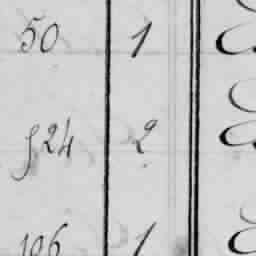 50 1
524 2
106 1